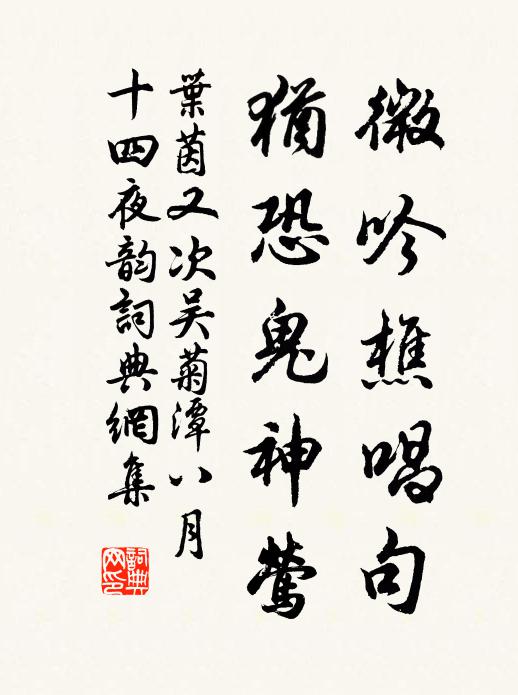 微吟樵唱句
猶恐鬼神鶯
葉茵又次吳菊潭八月
十四夜韵詞典網集
詞典網印